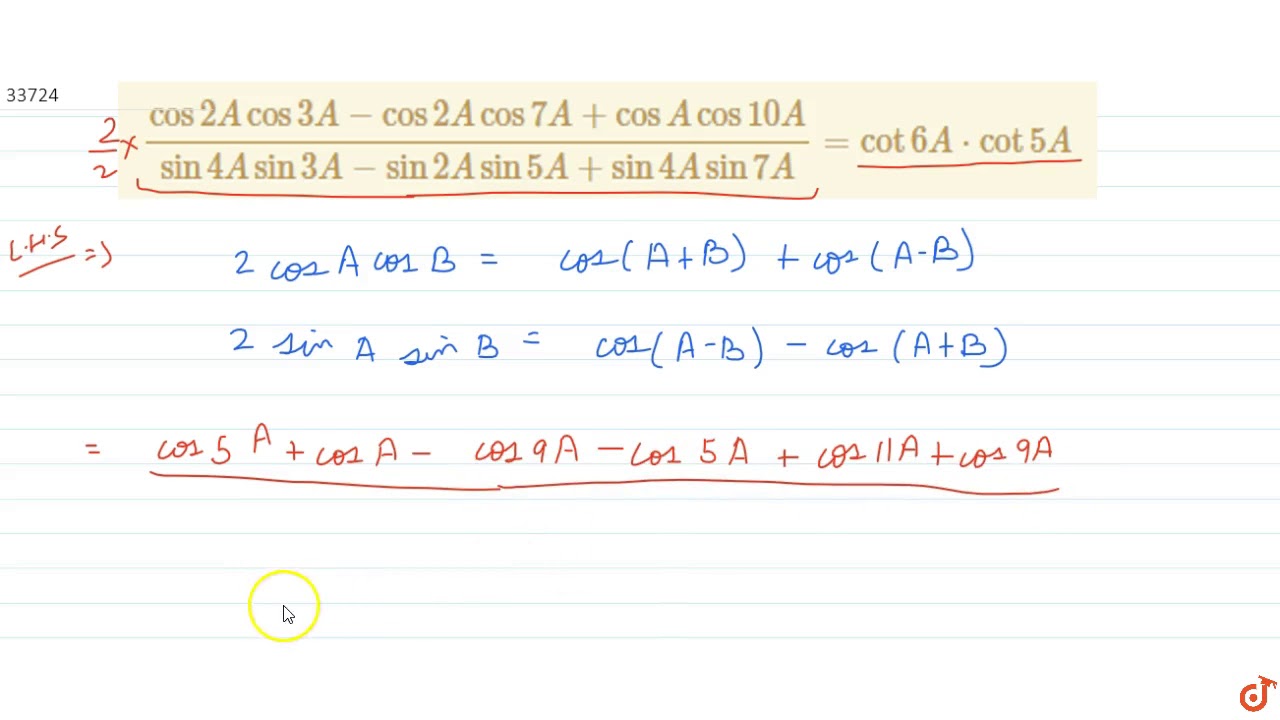 33724
2/2 × (cos 2A cos 3A − cos 2A cos 7A + cos A cos 10A)/(sin 4A sin 3A − sin 2A sin 5A + sin 4A sin 7A) = cot 6A · cot 5A
L.H.S => 2 cos A cos B = cos(A+B) + cos(A-B)
2 sin A sin B = cos(A-B) - cos(A+B)
= cos 5A + cos A - cos 9A - cos 5A + cos 11A + cos 9A